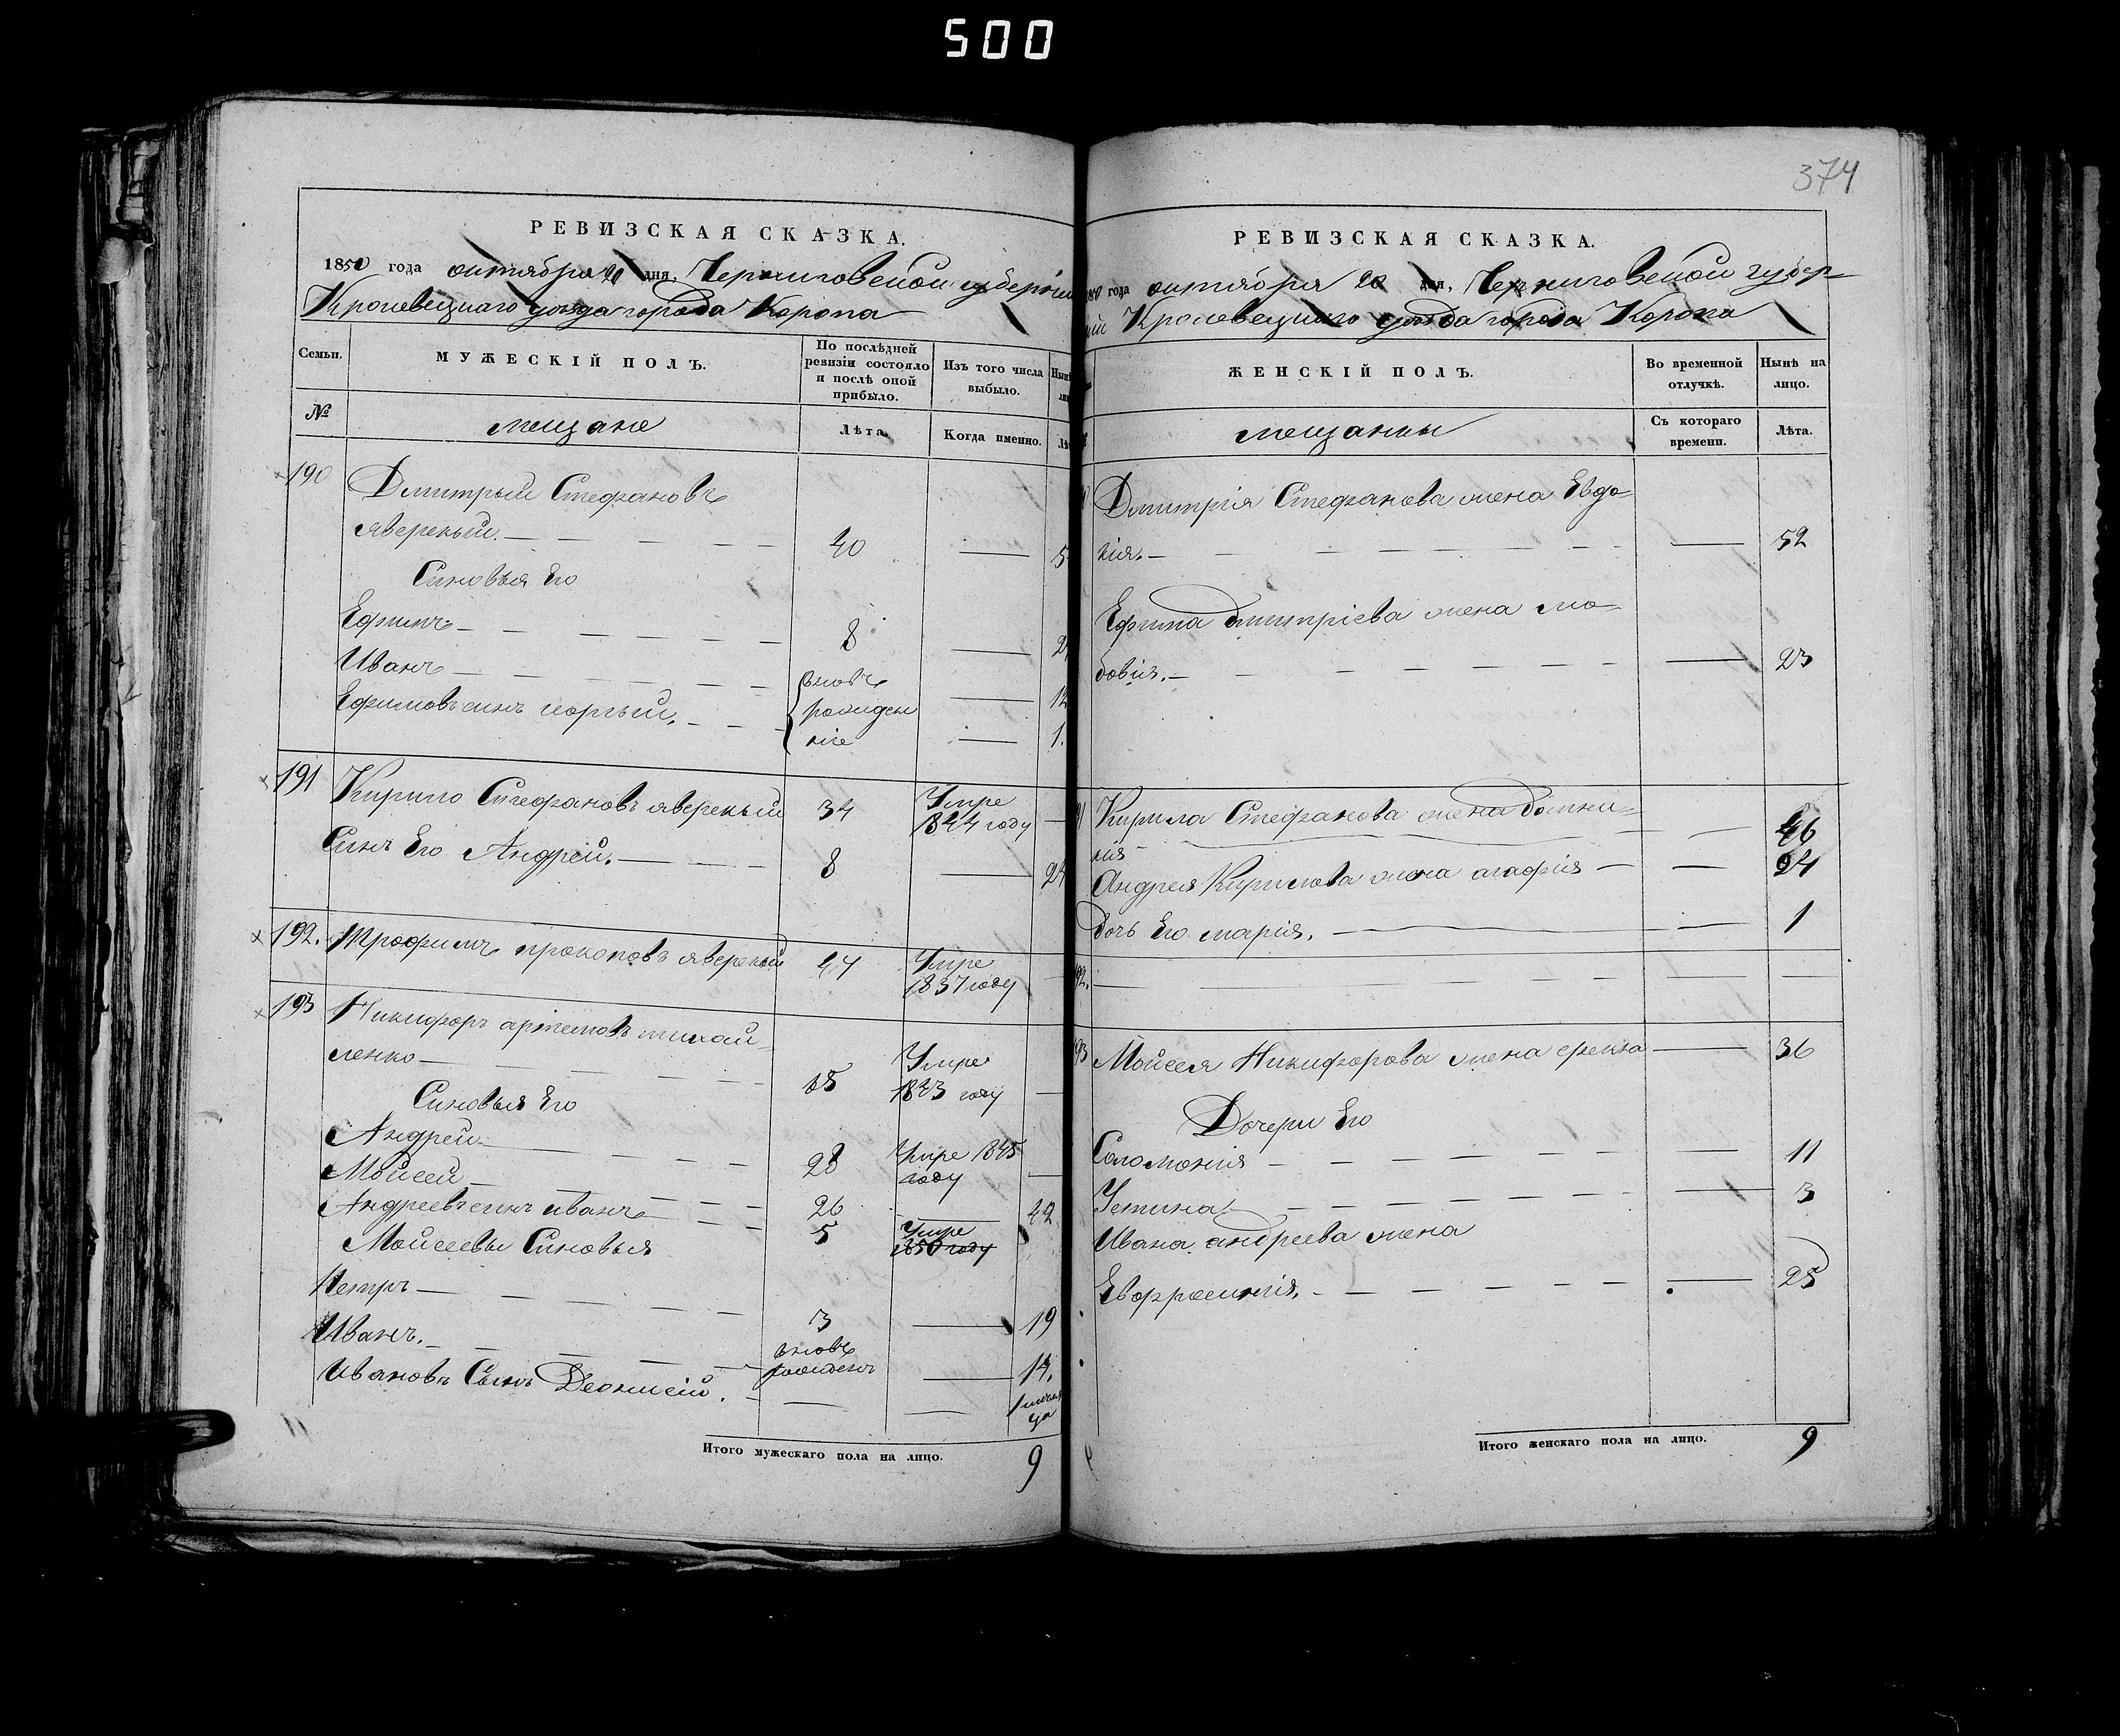 500
374
РЕВИЗСКАЯ СКАЗКА.
1850 года октября 20 дня, Черниговской губерніи
Кролевецкаго уѣзда города Коропа
Семьи.
МУЖЕСКІЙ ПОЛЪ.
По послѣдней
ревизіи состояло
и послѣ оной
прибыло.
Изъ того числа
выбыло.
№
мещане
Лѣта
Когда именно.
190
Дмитрый Стефановъ
яверскый. 40
Синовья Его
Ефимъ 8
Иванъ вновь
Ефимовъ синъ георгый. рожден
ніе 1.
191 Кирило Стефановъ яверскый 34 Умре
1844 году
Синъ Его Андрей. 8 24
192. Трофимъ прокоповъ яверскый 44 Умре
1837 году
193 Никифоръ артемовъ михай
ленко Умре
1843 году
Синовья Его
Андрей 28 Умре 1845
году
Мойсей 26 42
Андреевъ синъ иванъ 5 Умре
1850 году
Мойсеевы Синовья
Петръ 3 19
Иванъ. вновь
рожденъ 14.
Ивановъ Сынъ Деонисій. 1 меся
ца
Итого мужескаго пола на лицо. 9
РЕВИЗСКАЯ СКАЗКА.
года октября 20 дня, Черниговской губер
ніи Кролевецкаго уѣзда города Коропа
ЖЕНСКІЙ ПОЛЪ.
Во временной
отлучкѣ.
Нынѣ на
лицо.
мещанки
Съ котораго
времени.
Лѣта.
Дмитрія Стефанова жена Евдо
кія. 52
Ефима дмитріева жена лю
бовія. 23
Кирила Стефанова жена домни
кія 46
Андрея Кирилова жена агафія 24
дочь Его марія. 1
92.
93 Мойсея Никифорова жена фекла 36
Дочери Его
Соломонія 11
Устина 3
Ивана андреева жена
Евфросинія. 25
Итого женскаго пола на лицо. 9